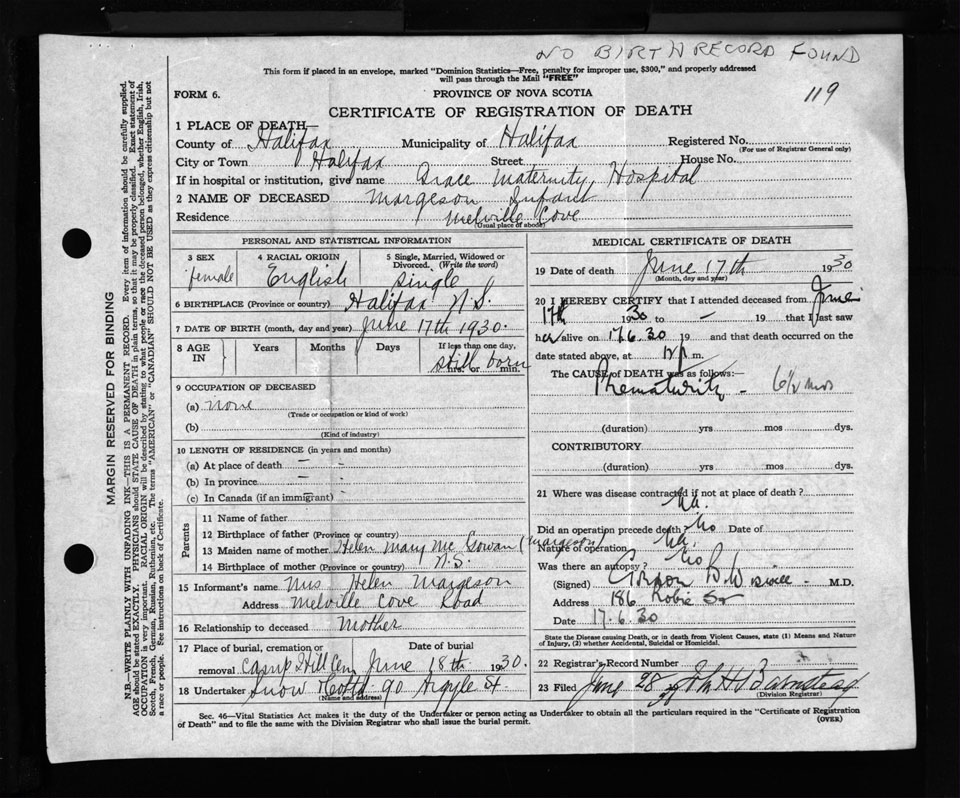 NO BIRTH RECORD FOUND
This form if placed in an envelope, marked "Dominion Statistics—Free, penalty for improper use, $300," and properly addressed
will pass through the Mail "FREE"
119
FORM 6.
PROVINCE OF NOVA SCOTIA
CERTIFICATE OF REGISTRATION OF DEATH
1 PLACE OF DEATH—
County of Halifax Municipality of Halifax Registered No.
(For use of Registrar General only)
City or Town Halifax Street House No.
If in hospital or institution, give name Grace Maternity Hospital
2 NAME OF DECEASED Margeson Infant
Residence Melville Cove
(Usual place of abode)
PERSONAL AND STATISTICAL INFORMATION
3 SEX
female
4 RACIAL ORIGIN
English
5 Single, Married, Widowed or
Divorced. (Write the word)
Single
6 BIRTHPLACE (Province or country) Halifax N.S.
7 DATE OF BIRTH (month, day and year) June 17th 1930.
8 AGE
IN
Years Months Days If less than one day,
still born
hrs. or min.
9 OCCUPATION OF DECEASED
(a) none
(Trade or occupation or kind of work)
(b)
(Kind of industry)
10 LENGTH OF RESIDENCE (in years and months)
(a) At place of death – -
(b) In province - -
(c) In Canada (if an immigrant) -
Parents
11 Name of father
12 Birthplace of father (Province or country)
13 Maiden name of mother Helen Mary Mc Gowan (Margeson)
14 Birthplace of mother (Province or country) N.S.
15 Informant's name Mrs Helen Margeson
Address Melville Cove Road
16 Relationship to deceased Mother
17 Place of burial, cremation or Date of burial
removal Camp Hill Cem June 18th 1930.
18 Undertaker Snow & Co Ltd 90 Argyle St
(Name and address)
MEDICAL CERTIFICATE OF DEATH
19 Date of death June 17th 1930
(Month, day and year)
20 I HEREBY CERTIFY that I attended deceased from June
17th 1930 to – 19 that I last saw
her alive on 17.6.30 19 and that death occurred on the
date stated above, at m.
The CAUSE OF DEATH was as follows:—
Prematurity - 6½ mos
(duration) yrs mos dys.
CONTRIBUTORY
(duration) yrs mos dys.
21 Where was disease contracted if not at place of death?
Did an operation precede death? No Date of
Nature of operation
Was there an autopsy? No
(Signed) M.D.
Address 186 Robie St
Date 17.6.30
State the Disease causing Death, or in death from Violent Causes, state (1) Means and Nature
of Injury, (2) whether Accidental, Suicidal or Homicidal.
22 Registrar's Record Number
23 Filed June 28 John H Barnstead
(Division Registrar)
Sec. 46—Vital Statistics Act makes it the duty of the Undertaker or person acting as Undertaker to obtain all the particulars required in the "Certificate of Registration
of Death" and to file the same with the Division Registrar who shall issue the burial permit.
(OVER)
MARGIN RESERVED FOR BINDING
N.B.—WRITE PLAINLY WITH UNFADING INK—THIS IS A PERMANENT RECORD. Every item of information should be carefully supplied.
AGE should be stated EXACTLY. PHYSICIANS should STATE CAUSE OF DEATH in plain terms, so that it may be properly classified. Exact statement of
OCCUPATION is very important. RACIAL ORIGIN will be described by stating to what people or race the deceased person belonged, whether English, Irish,
Scotch, French, German, Russian, Ruthenian, etc. The terms "AMERICAN" or "CANADIAN" SHOULD NOT BE USED as they express citizenship but not
a race or people. See instructions on back of Certificate.